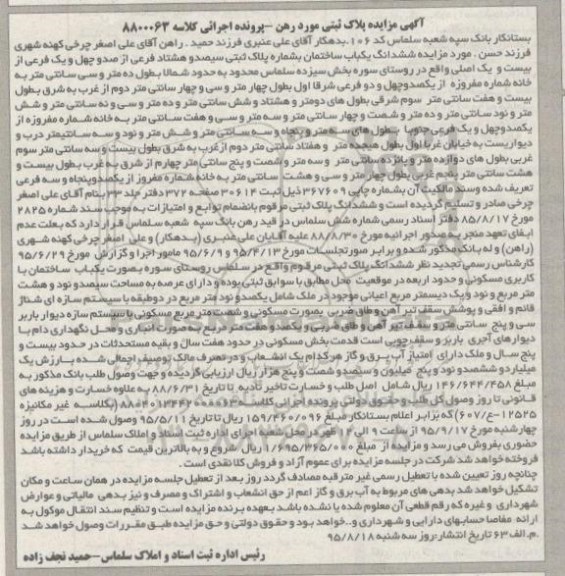 آگهی مزایده پلاک ثبتی مورد رهن -پرونده اجرائی کلاسه ۸۸۰۰۰۶۳
بستانکار بانک سپه شعبه سلماس کد ۱۰۶.بدهکار آقای علی عنبری فرزند حمید . راهن آقای علی اصغر چرخی کهنه شهری
فرزند حسن . مورد مزایده ششدانگ یکباب ساختمان بشماره پلاک ثبتی سیصدو هشتاد فرعی از صدو چهل و یک فرعی از
بیست و یک اصلی واقع در روستای سوره بخش سیزده سلماس محدود به حدود شمالا بطول ده متر و سی سانتی متر به
خانه شماره مفروزه از یکصدوچهل و دو فرعی شرقا اول بطول چهار متر و سی و چهار سانتی متر دوم از غرب به شرق بطول
بیست و هفت سانتی متر سوم شرقی بطول های دومتر و هشتاد و شش سانتی متر و ده متر و سی و نه سانتی متر و شش
متر و نود سانتی متر و ده متر و شصت و چهار سانتی متر و سه متر و سی و هفت سانتی متر به خانه شماره مفروزه از
یکصدوچهل و یک فرعی جنوبا بطول های سه متر و پنجاه و سه سانتی متر و شش متر و نود و سه سانتیمتر درب و
دیواریست به خیابان غربا اول بطول هیجده متر و هفتاد سانتی متر دوم ازغرب به شرق بطول بیست و سه سانتی متر سوم
غربی بطول های دوازده متر و پانزده سانتی متر و سه متر و شصت و پنج سانتی متر چهارم از شرق به غرب بطول بیست و
هشت سانتی متر پنجم غربی بطول چهار متر و سی و هشت سانتی متر به خانه شماره مفروز از یکصدوپنجاه و سه فرعی
تعریف شده وسند مالکیت آن بشماره چاپی ۳۶۷۶۰۹ ذیل ثبت ۳۰۶۱۴ صفحه ۳۷۲ دفتر جلد ۲۳ بنام آقای علی اصغر
چرخی صادر و تسلیم گردیده است و ششدانگ پلاک ثبتی مرقوم بانضمام توابع و امتیازات به موجب سند شماره ۲۸۲۵
مورخ ۸۵/۸/۱۷ دفتر اسناد رسمی شماره شش سلماس در قید رهن بانک سپه شعبه سلماس قرار دارد که بعلت عدم
ایفای تعهد منجر به صدور اجرائیه مورخ ۸۸/۸/۳۰ علیه آقایان علی عنبری (بدهکار) و علی اصغر چرخی کهنه شهری
(راهن) و له بانک مذکور شده و برابر صورتجلسات مورخ ۹۵/۴/۱۳ و ۹۵/۶/۹ مامور اجرا و گزارش مورخ ۹۵/۶/۲۹
کارشناس رسمی تجدید نظر ششدانگ پلاک ثبتی مرقوم واقع در سلماس روستای سوره بصورت یکباب ساختمان با
کاربری مسکونی و حدود اربعه در موقعیت محل مطابق با سوابق ثبتی بوده و دارای عرصه به مساحت سیصدو نود و هشت
متر مربع و نود ویک دیسمتر مربع اعیانی موجود در ملک شامل یکصدو نود متر مربع در دوطبقه با سیستم سازه ای شناژ
قائم و افقی و پوشش سقف تیر آهن و طاق ضربی بصورت مسکونی و شصت متر مربع مسکونی با سیستم سازه دیوار باربر
سی و پنج سانتی متر و سقف تیر آهن و طاق ضربی و یکصدو هفت متر مربع به صورت انباری و محل نگهداری دام با
دیوارهای آجری باربر و سقف چوبی است قدمت بخش مسکونی در حدود هفت سال و بقیه مستحدثات در حدود بیست و
پنج سال و ملک دارای امتیاز آب برق و گاز هرکدام یک انشعاب و در تصرف مالک توصیف اجمالی شده بارزش یک
میلیاردو ششصدو نود و پنج میلیون و سیصدو شصت و پنج هزار ریال ارزیابی گردیده و جهت وصول طلب بانک مذکور به
مبلغ ۱۴۶/۶۴۴/۴۵۸ ریال شامل اصل طلب و خسارت تاخیر تادیه تا تاریخ ۸۸/۶/۳۱ به علاوه خسارت و هزینه های
قانونی تا روز وصول کل طلب و حقوق دولتی پرونده اجرائی کلاسه (بکلاسه غیر مکانیزه
۱۲۵۲۵-۶۰۷/ع) که برابر اعلام بستانکار مبلغ ۱۵۹/۴۶۰/۰۹۶ ریال تا تاریخ ۹۵/۵/۱۱ وصول شده است در روز
چهارشنبه مورخ ۹۵/۹/۱۷ از ساعت ۹ الی ۱۲ ظهر در محل شعبه اجرای اداره ثبت اسناد و املاک سلماس از طریق مزایده
حضوری بفروش می رسد و مزایده از مبلغ ۱/۶۹۵/۳۶۵/۰۰۰ ریال شروع و به بالاترین قیمت که خریدار داشته باشد
فروخته خواهد شد شرکت در جلسه مزایده برای عموم آزاد و فروش کلا نقدی است .
چنانچه روز تعیین شده با تعطیل رسمی غیر مترقبه مصادف گردد روز بعد از تعطیل جلسه مزایده در همان ساعت و مکان
تشکیل خواهد شد بدهی های مربوط به آب برق و گاز اعم از حق انشعاب و اشتراک و مصرف و نیز بدهی مالیاتی و عوارض
شهرداری و غیره که رقم قطعی آن معلوم شده یا نشده باشد بعهده برنده مزایده است و تنظیم سند انتقال موکول به
ارائه مفاصا حسابهای دارایی و شهرداری و..خواهد بود و حقوق دولتی و حق مزایده طبق مقررات وصول خواهد شد
.م.الف ۶۳ تاریخ انتشار:روز سه شنبه ۹۵/۸/۱۸
رئیس اداره ثبت اسناد و املاک سلماس-حمید نجف زاده